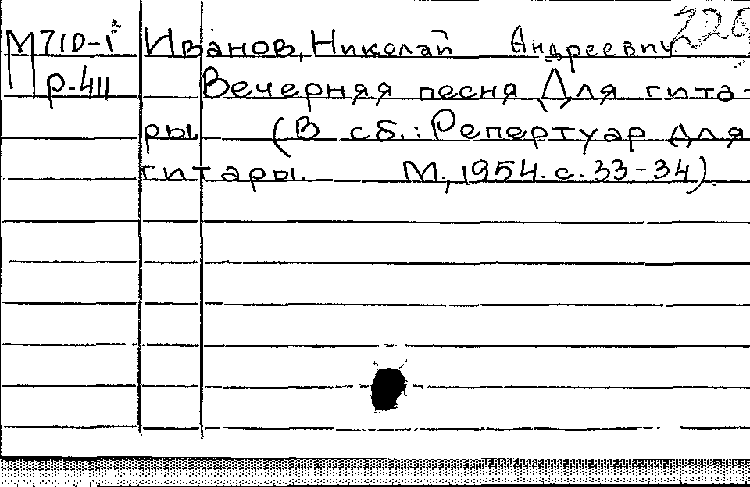 М71D-1 Иванов, Николай Андреевич
Р-411 Вечерняя песня Для гита-
ры (В сб.: Репертуар для
гитары. М., 1954. с. 33-34).